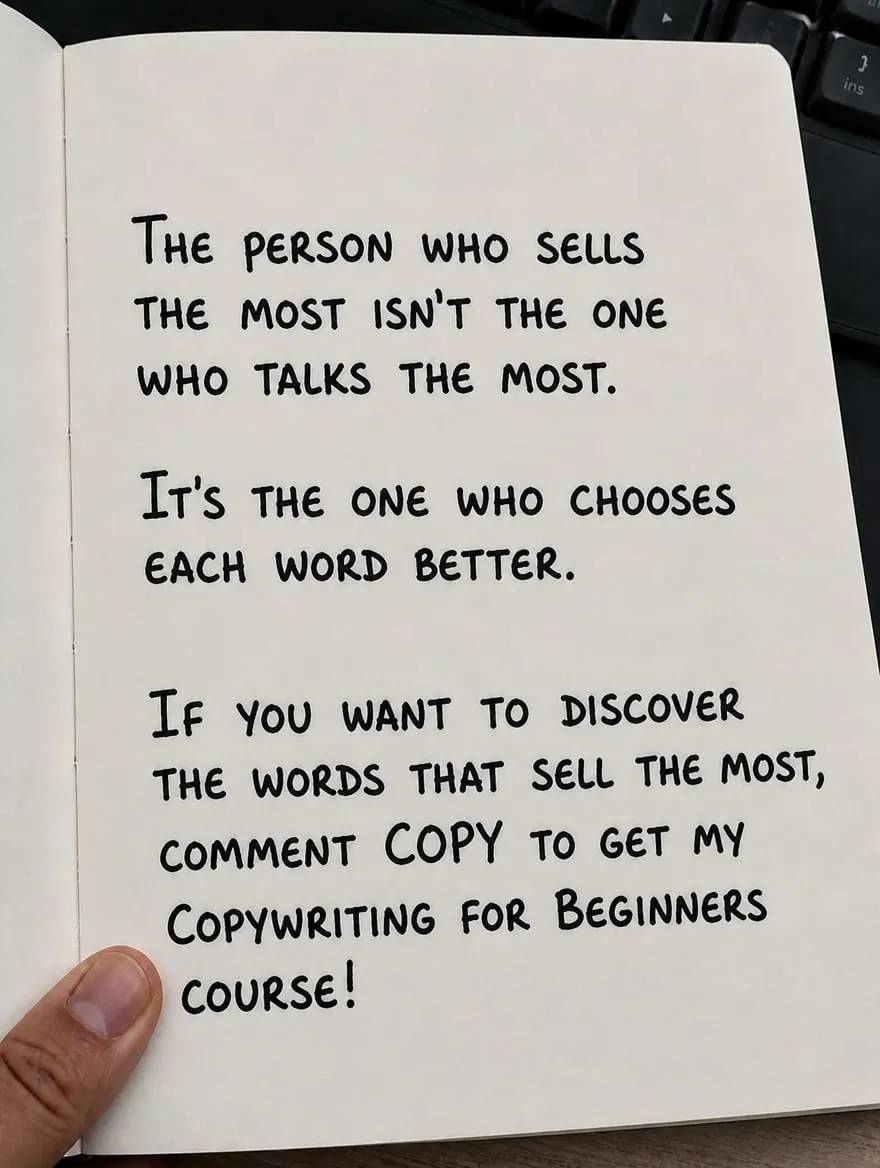 The person who sells
the most isn't the one
who talks the most.
It's the one who chooses
each word better.
If you want to discover
the words that sell the most,
comment COPY to get my
Copywriting for Beginners
course!
}
ins